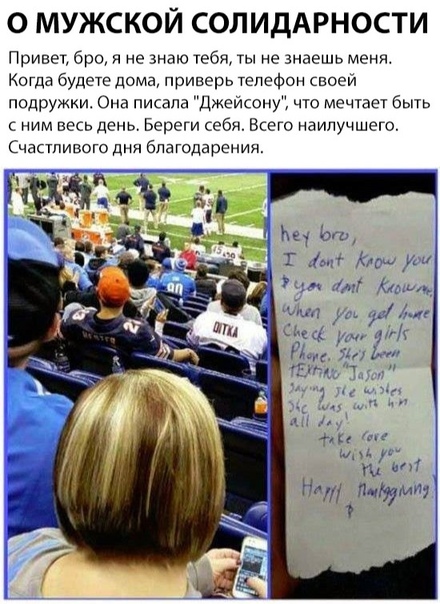 О МУЖСКОЙ СОЛИДАРНОСТИ
Привет, бро, я не знаю тебя, ты не знаешь меня.
Когда будете дома, приверь телефон своей
подружки. Она писала "Джейсону", что мечтает быть
с ним весь день. Береги себя. Всего наилучшего.
Счастливого дня благодарения.
DITKA
hey bro,
I dont know you
you dont know me.
When you get home
Check your girls
Phone. She's been
TEXTING "Jason"
Saying she wishes
She was with him
all day!
take care
wish you
the best
Happy